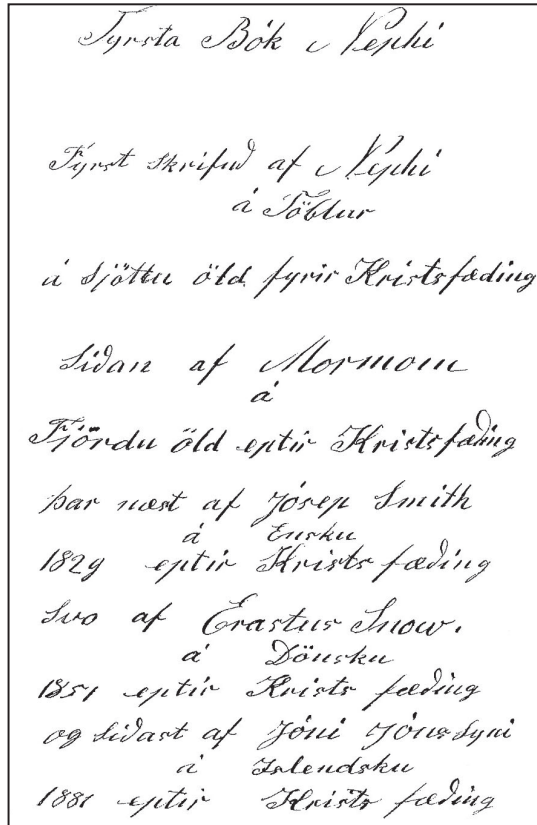 Fyrsta Bók Nephi
Fyrst skrifud af Nephi
á Töblur
á sjöttu öld fyrir Kristsfæding
Sidan af Mormom
á
Fjördu öld eptir Kristsfæðing
þar næst af Jósep Smith
á Ensku
1829 eptir Krists fæðing
Svo af Erastus Snow.
á Dönsku
1851 eptir Krists fæðing
og Siðast af Jóni Jónssyni
á Islendsku
1881 eptir Krists fæðing